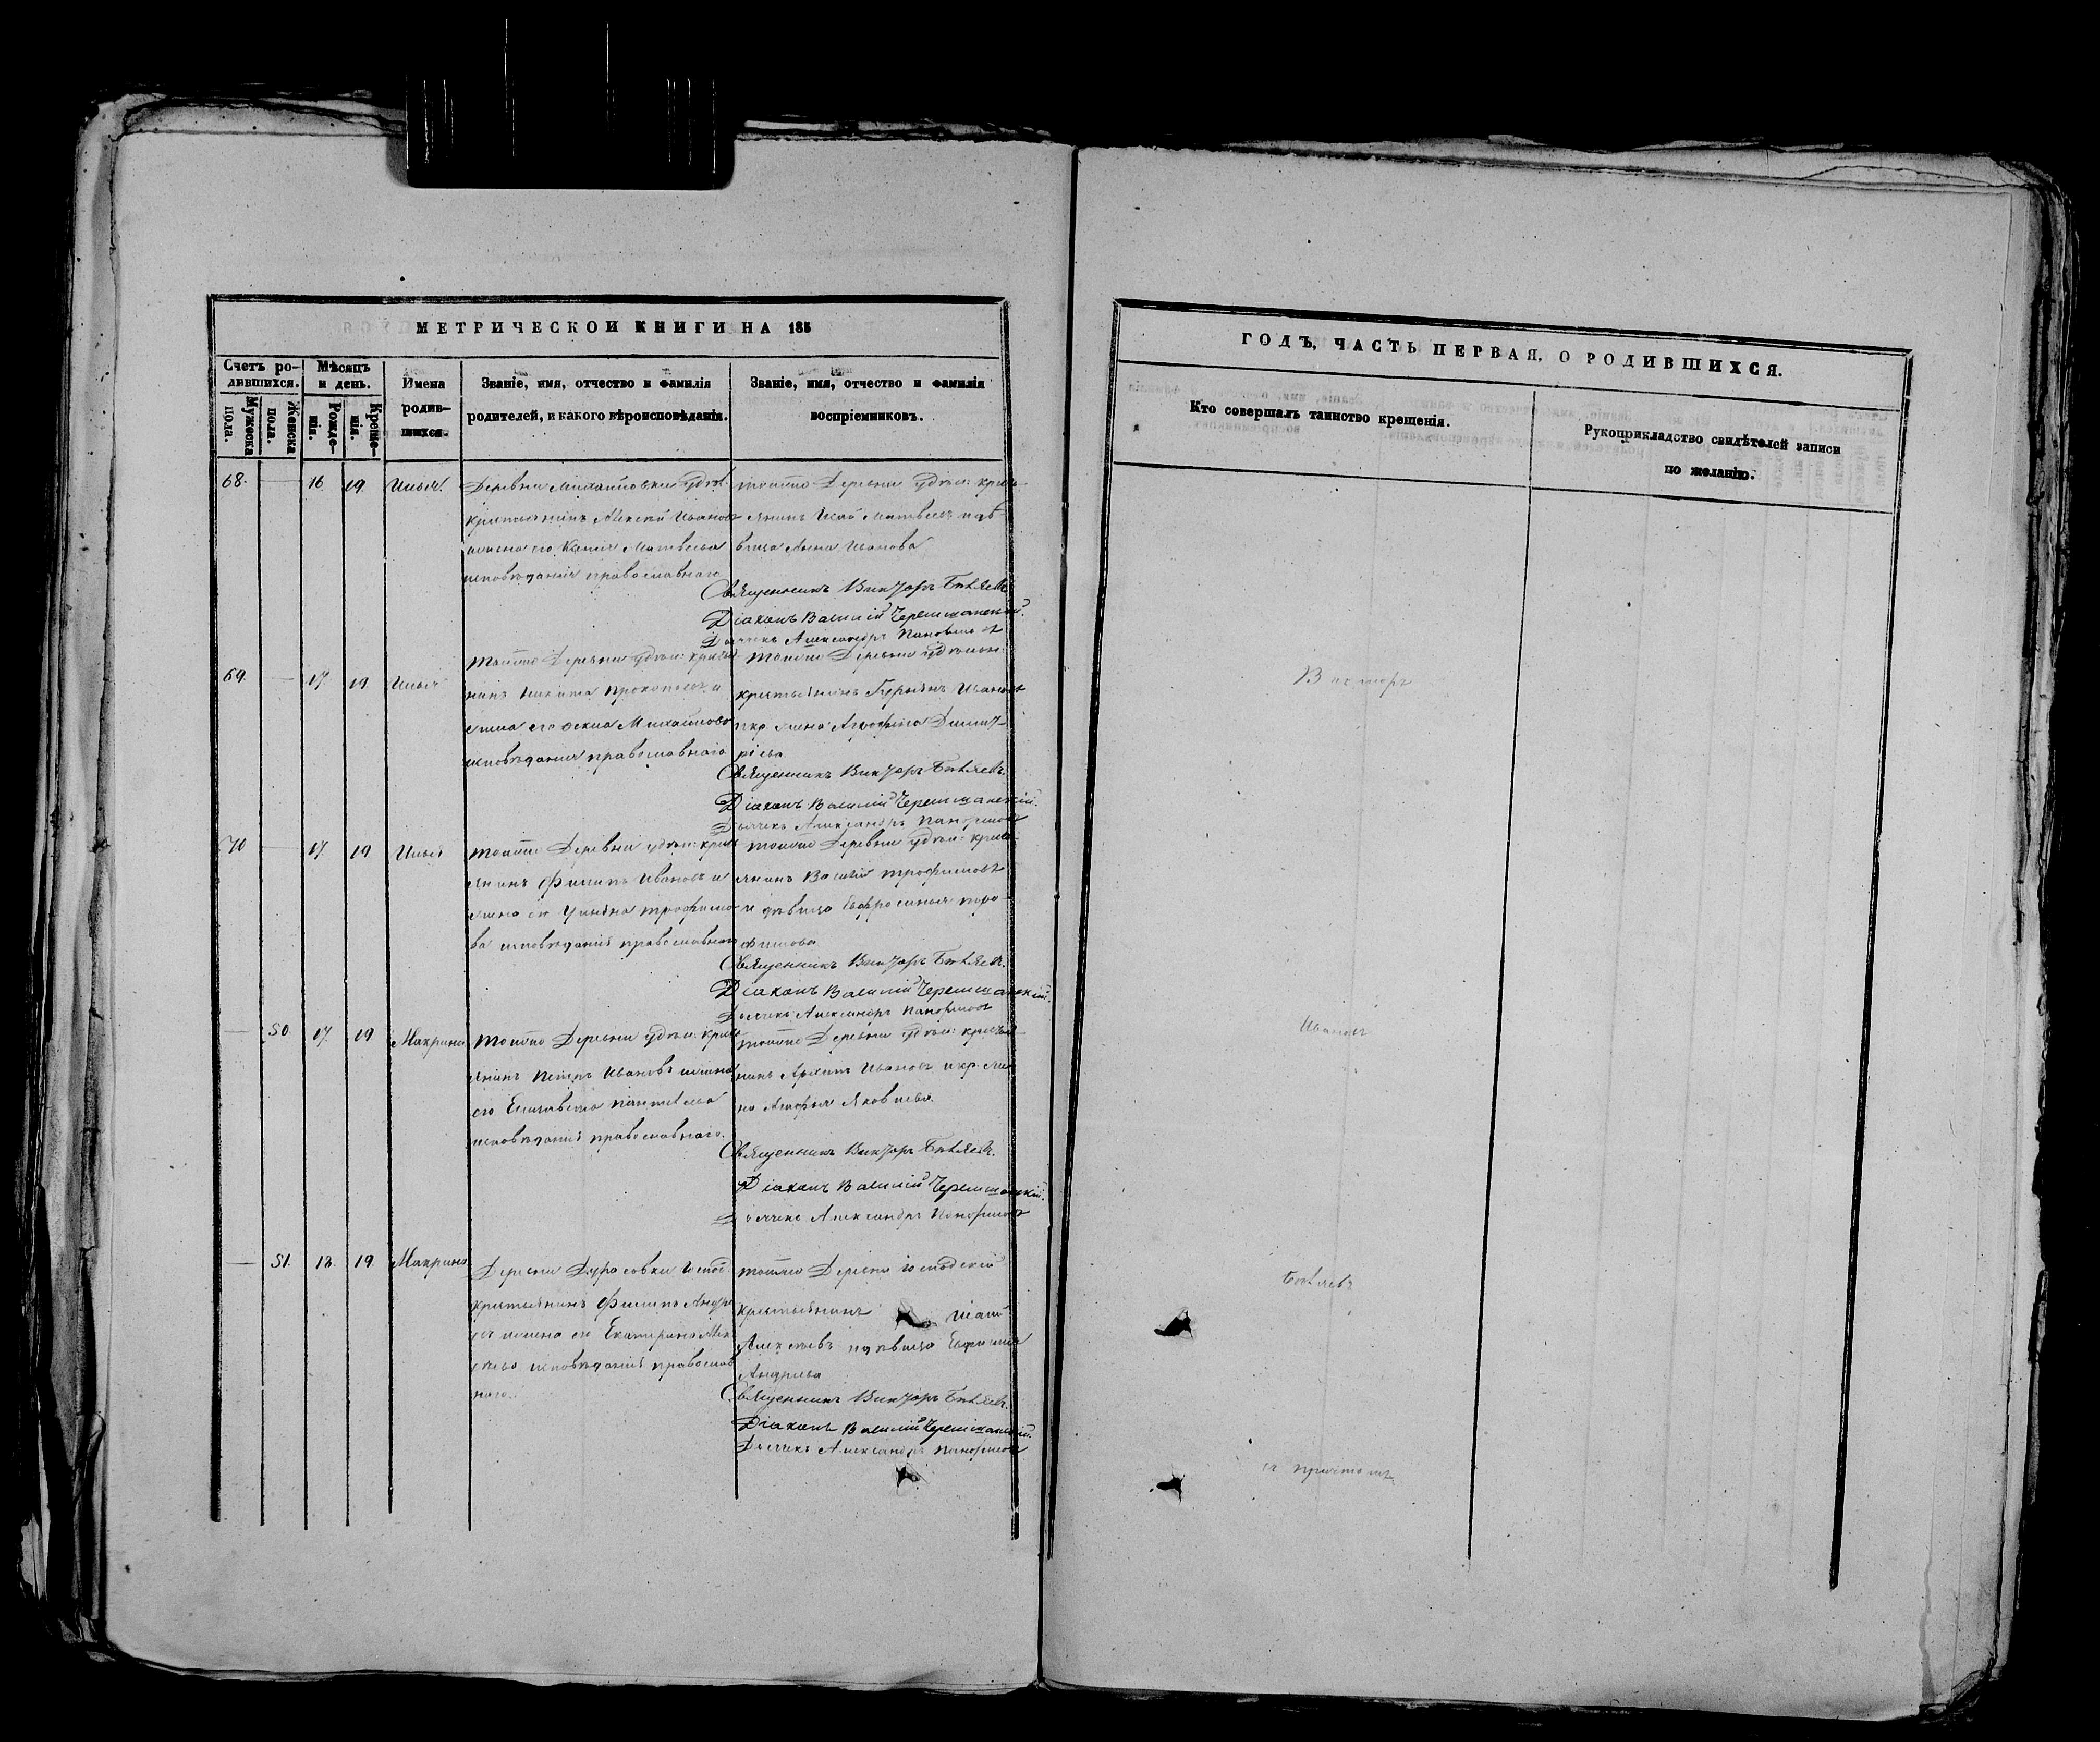 МЕТРИЧЕСКОЙ КНИГИ НА 185
Счетъ ро-
дившихся.
Мужеска
пола.
Женска
пола.
Мѣсяцъ
и день.
Рожде-
нія.
Креще-
нія.
Имена
родив-
шихся.
Званіе, имя, отчество и фамилія
родителей, и какого вѣроисповѣданія.
Званіе, имя, отчество и фамилія
воспріемниковъ.
68. 16 19. Илья.
Деревни Михайловки удѣл:
крестьянинъ Алексѣй Ивановъ
жена его Матвеева
исповѣданія православнаго
тойже Деревни удѣл: крест-
янинъ Матвеевъ и дѣ-
вица Анна Иванова
Священникъ Викторъ Бѣляевъ
Діаконъ Василій Черемшанскій.
Дьячекъ Александръ
69. 17. 19 Илья
тойже Деревни удѣл: крестья-
нинъ Никита Прокопьевъ и
жена его Михайлова
исповѣданія православнаго
тойже Деревни удѣльн:
крестьянинъ Ивановъ
и кр. жена Агрофена Димит-
ріева
Священникъ Викторъ Бѣляевъ.
Діаконъ Василій Черемшанскій.
Дьячекъ Александръ
70 17. 19 Илья
тойже Деревни удѣл: крест-
янинъ Филипъ Ивановъ и
жена его Трофимо-
ва исповѣданія православнаго
тойже Деревни удѣл: крест-
янинъ Василій Трофимовъ
и дѣвица Евфросинья Тро-
фимова
Священникъ Викторъ Бѣляевъ.
Діаконъ Василій Черемшанскій.
Дьячекъ Александръ
50. 17. 19 Макрина
тойже Деревни удѣл: крест-
янинъ Петръ Ивановъ и жена
его Елизавета
исповѣданія православнаго.
тойже Деревни удѣл: крестья-
нинъ Архипъ Ивановъ и кр. же-
на Агафья Яковлева.
Священникъ Викторъ Бѣляевъ.
Діаконъ Василій Черемшанскій.
Дьячекъ Александръ
51. 18. 19 Макрина
Деревни Дурасовки Господ.
крестьянинъ Филипъ Андре-
евъ и жена его Екатерина Алек-
сеева исповѣданія православ-
наго.
тойже Деревни Господской
крестьянинъ
Алексеевъ и дѣвица Евфимия
Андреева
Священникъ Викторъ Бѣляевъ.
Діаконъ Василій Черемшанскій.
Дьячекъ Александръ
ГОДЪ, ЧАСТЬ ПЕРВАЯ, О РОДИВШИХСЯ.
Кто совершалъ таинство крещенія.
Рукоприкладство свидѣтелей записи
по желанію.
Викторъ
Ивановъ
Бѣляевъ
съ причтомъ